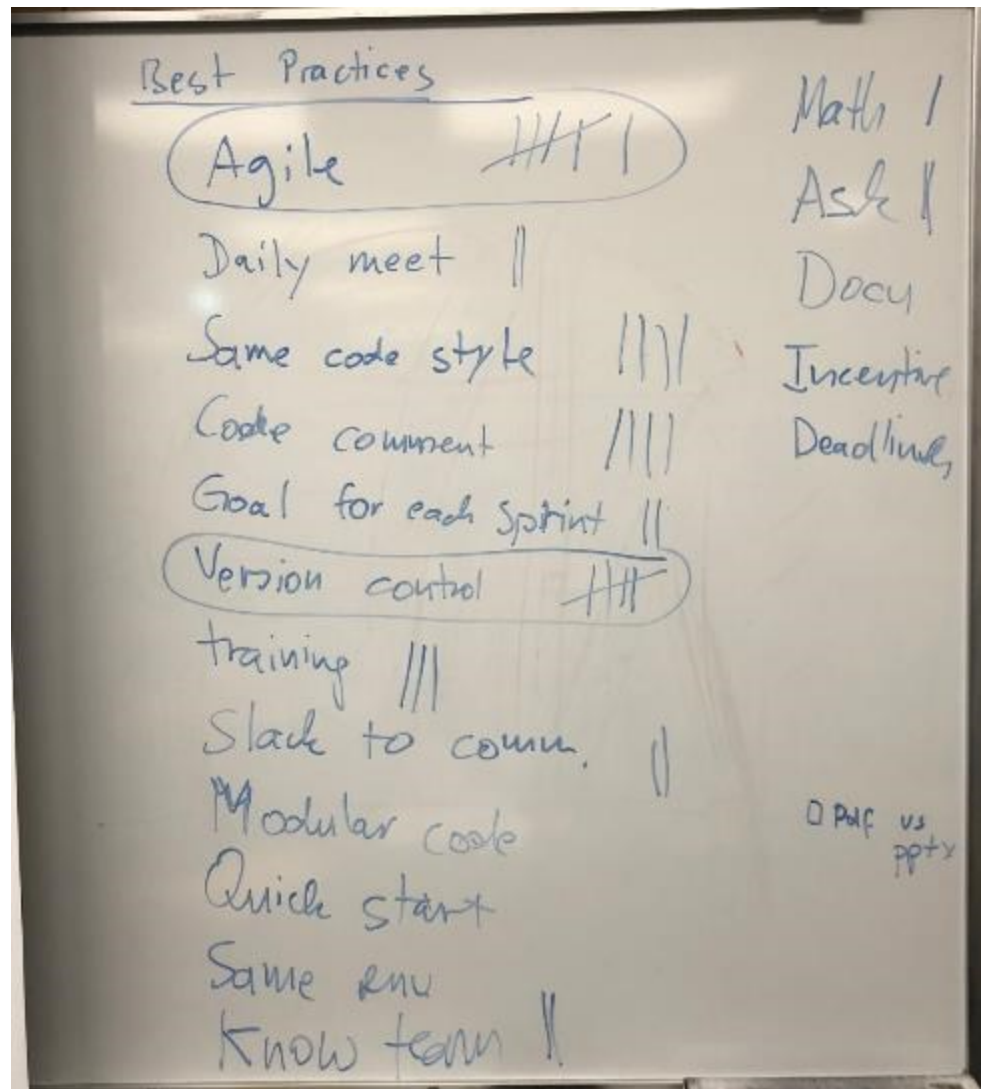 Best Practices
Agile
Daily meet ||
Same code style ||||
Code comment ||||
Goal for each sprint ||
Version control
training |||
Slack to comm. ||
Modular code
Quick start
Same env
Know team ||
Math |
Ask ||
Docu
Incentive
Deadlines
pdf vs
pptx